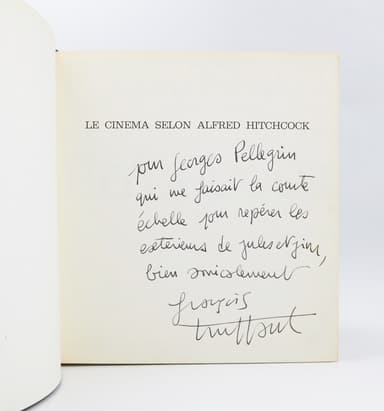 LE CINEMA SELON ALFRED HITCHCOCK
pour Georges Pellegrin
qui me faisait la courte
échelle pour repérer les
extérieurs de jules et jim,
bien amicalement
françois
truffaut